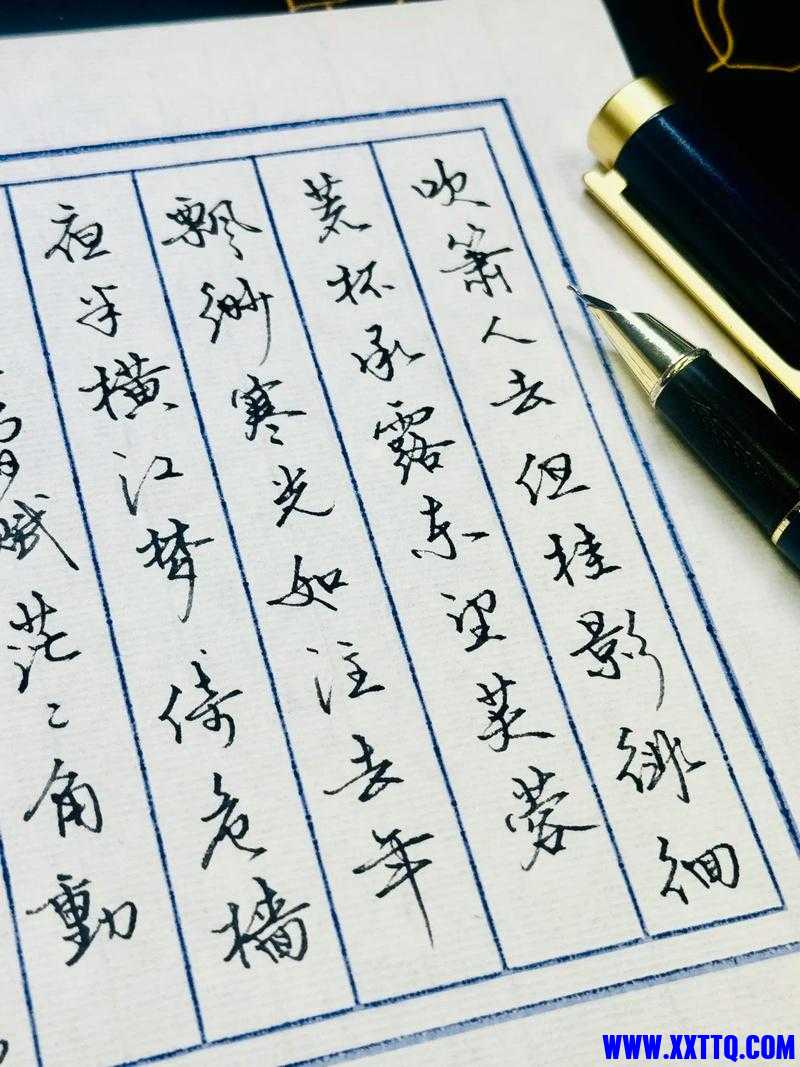 吹箫人去但桂影徘徊
荒杯承露东望芙蓉
飘缈寒光如注去年
夜半横江梦倚危樯
曾赋茫々角動
WWW.XXTTQ.COM